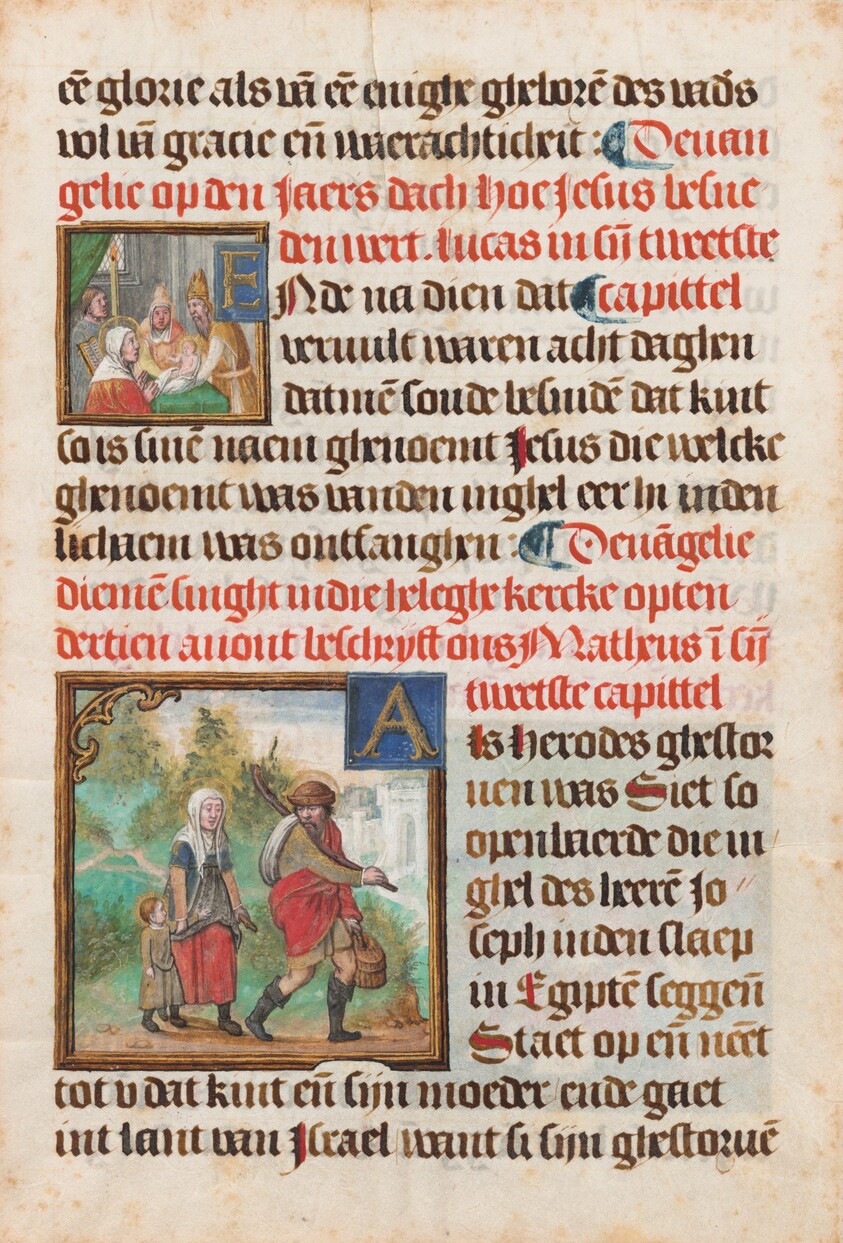 eē glorie als vā eē enighe ghelorē des vad's
vol vā gracie eñ waerachticheit : Deuan
gelie op den Jaers dach hoe Jesus besne
den wert. Lucas in sij̄ tweetste
E
Nde na dien dat capittel
veruult waren acht daghen
datmē soude besnidē dat kint
so is sinē naem ghenoemt Jesus die welcke
ghenoemt was vanden inghel eer hi inden
lichaem was ontfanghen : Deuāgelie
diemē singht in die heleghe kercke opten
dertien auont beschrijft ons Matheus ī sij̄
tweetste capittel
A
ls herodes ghestor
uen was Siet so
openbaerde die in
ghel des heerē Jo
seph inden slaep
in Egiptē seggeñ
Staet op eñ neēt
tot v dat kint eñ sijn moeder ende gaet
int lant van Israel want si sijn ghestoruē